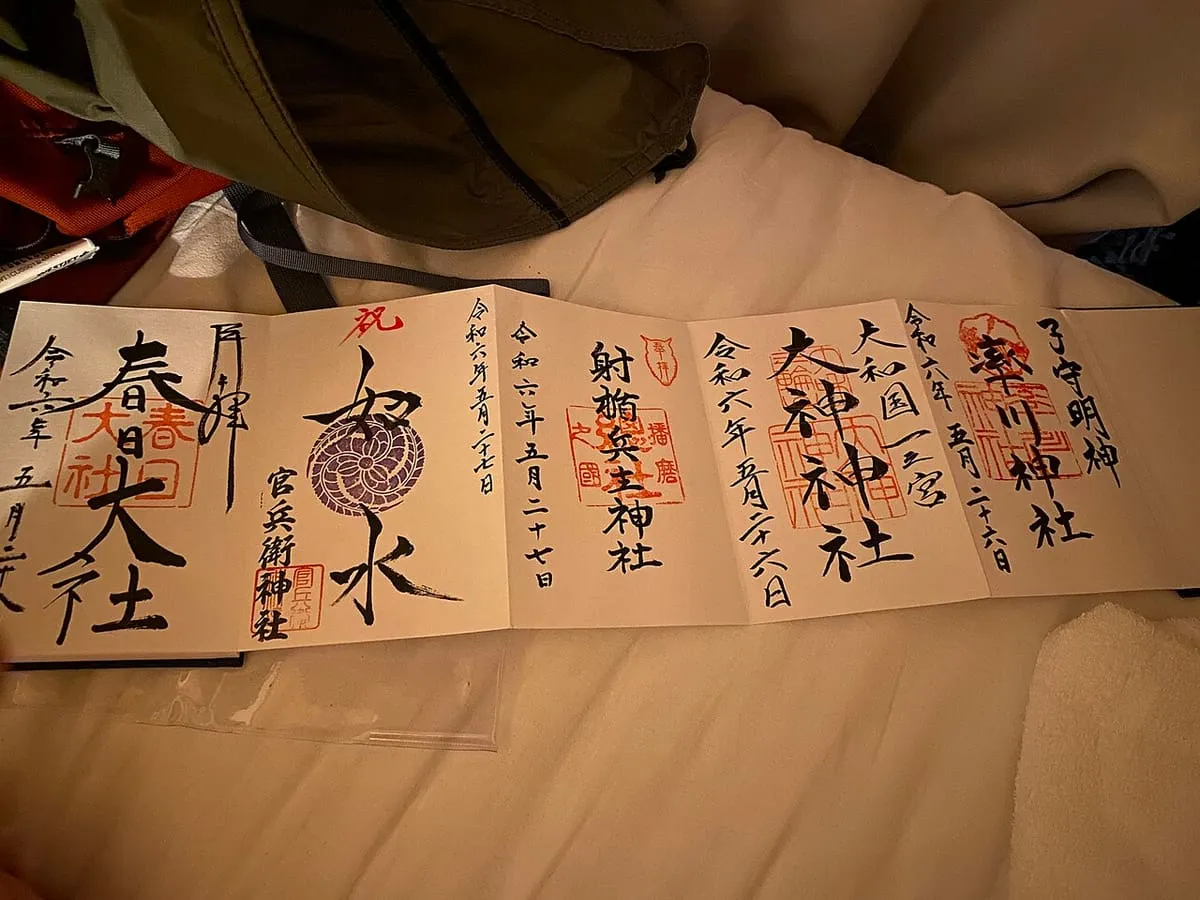 子守明神
率川神社
令和六年 五月二十六日
大和国一之宮
大神神社
令和六年五月二十六日
奉拝
射楯兵主神社
播磨
之國
令和六年五月二十七日
令和六年五月二十七日
祝
如水
官兵衛神社
奉拝
春日大社
春日
大社
令和六年 五月二十